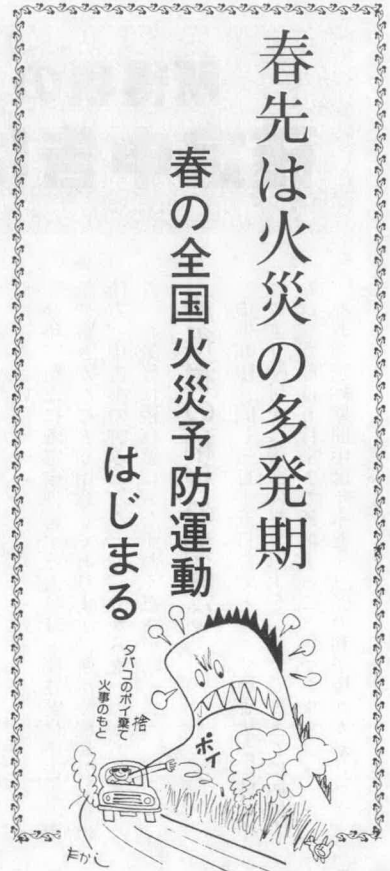 春先は火災の多発期
春の全国火災予防運動
はじまる
タバコのポイ捨棄て
火事のもと
ポイ
たかし